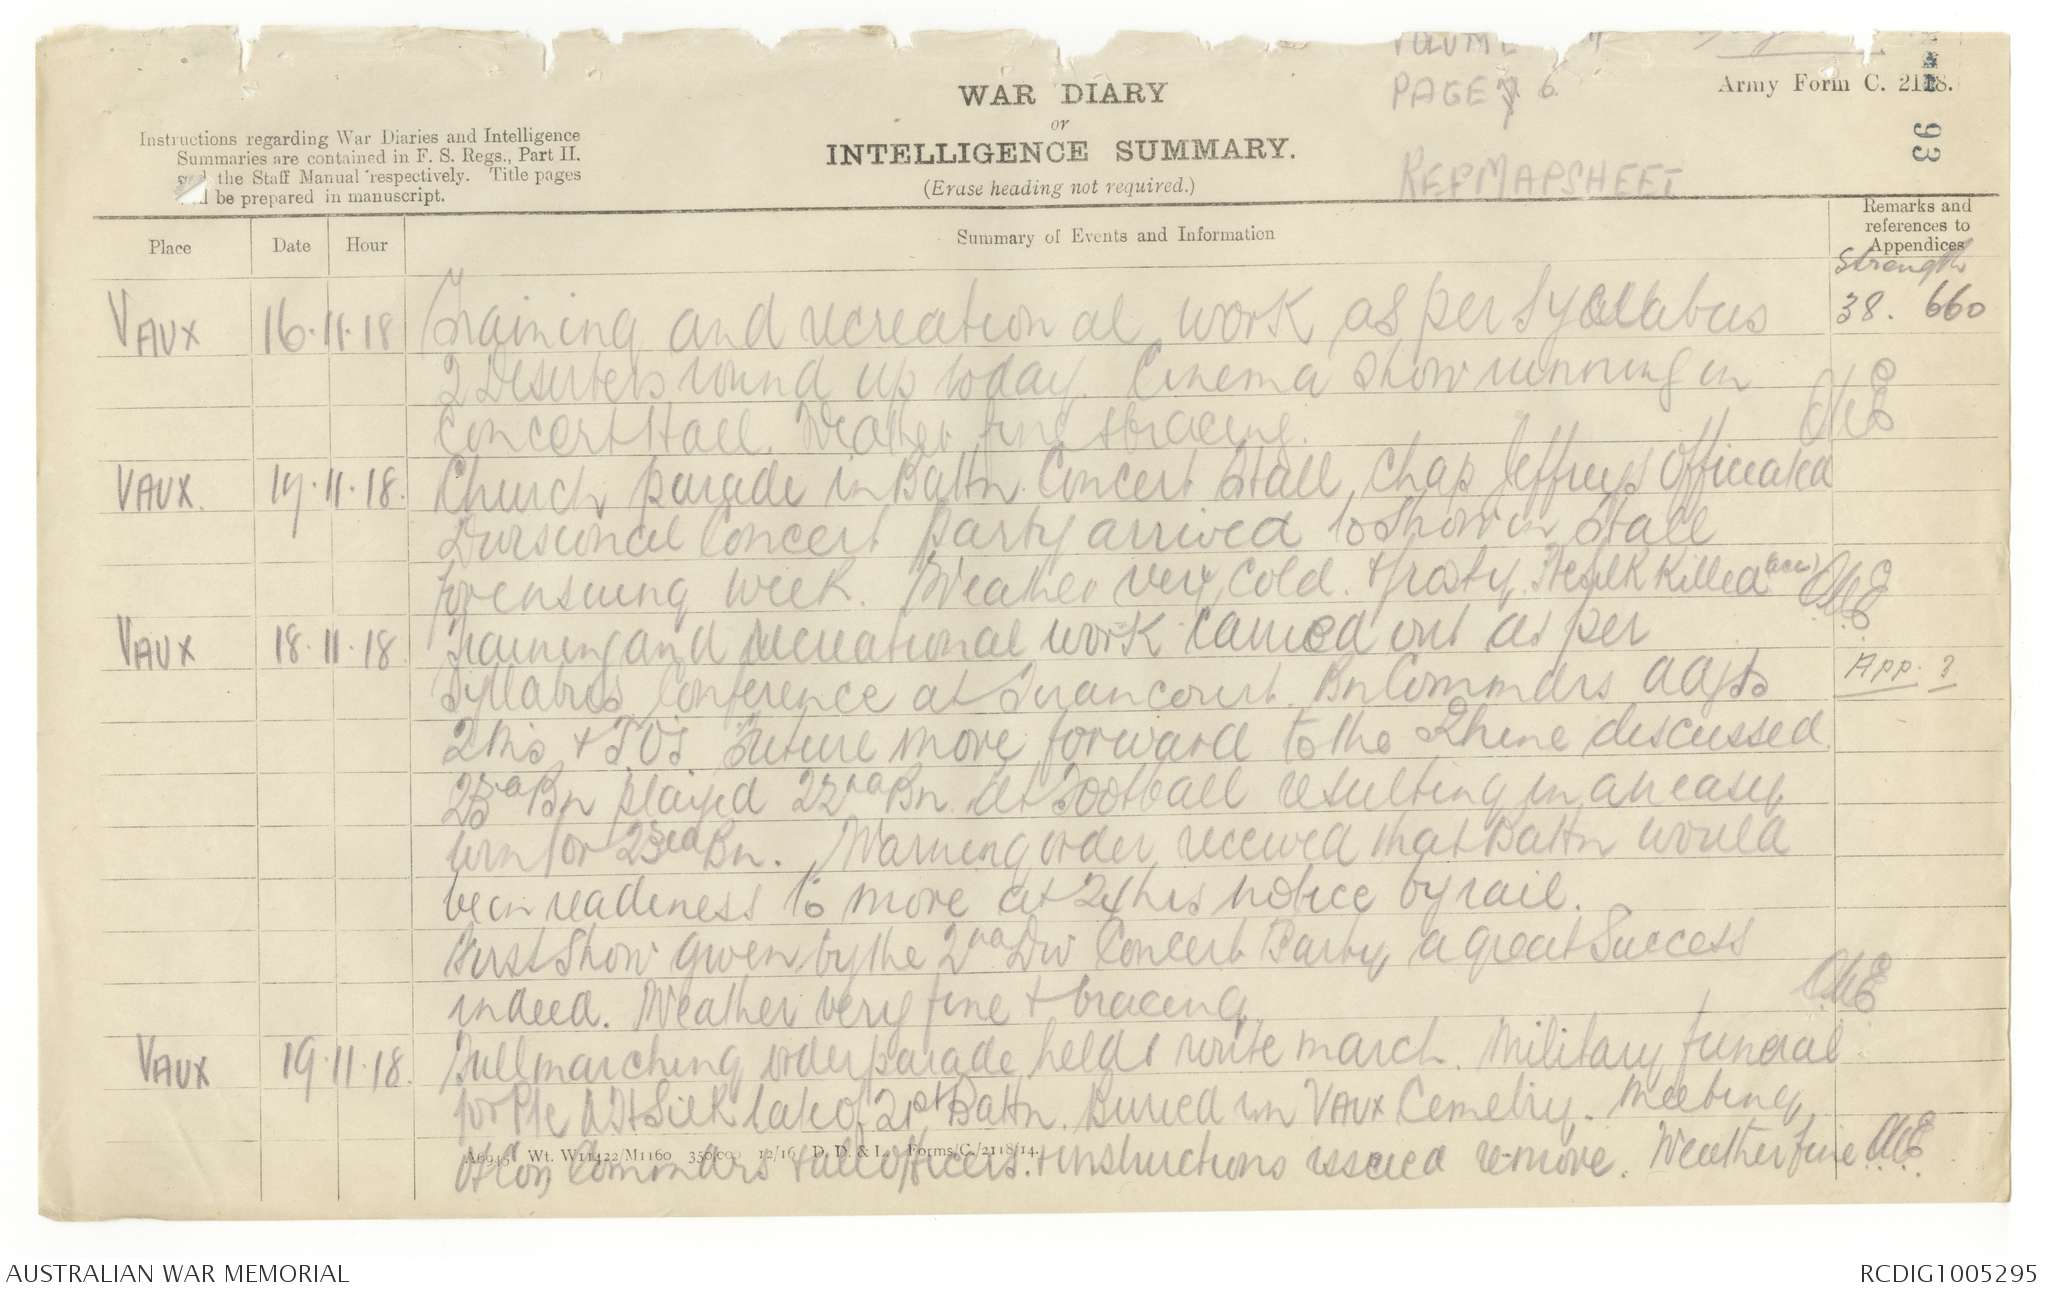 WAR DIARY
or
INTELLIGENCE SUMMARY.
(Erase heading not required.)
PAGE 6
REF MAP SHEET
Army Form C. 2118.
93
Instructions regarding War Diaries and Intelligence
Summaries are contained in F. S. Regs., Part II.
and the Staff Manual respectively. Title pages
will be prepared in manuscript.
Place
Date
Hour
Summary of Events and Information
Remarks and
references to
Appendices
Strength
VAUX 16.11.18 Training and recreational work as per Syllabus 38. 660
2 Deserters round up today. Cinema show running in
Concert Hall. Weather fine & bracing.
VAUX. 17.11.18. Church parade in Battn Concert Hall, Chap Jeffreys Officiated
Divisional Concert Party arrived to Show in Hall
for ensuing week. Weather very cold & frosty. Silk Killed (acc)
VAUX 18.11.18 Training and recreational work carried out as per
Syllabus. Conference at Bn Commdrs adjts App. 3
QMs & T.Os. Future move forward to the Rhine discussed.
23rd Bn played 22nd Bn at Football resulting in an easy
win for 23rd Bn. Warning order received that Battn would
be in readiness to move at 24 hrs notice by rail.
First Show given by the 2nd Div Concert Party, a great Success
indeed. Weather very fine & bracing
VAUX 19.11.18. Full marching order parade held & route march. Military funeral
for Pte Silk late of 21st Battn. Buried in VAUX Cemetry. Meeting
of Coy Commdrs & all Officers. & instructions issued re move. Weather fine
A6945 Wt. W11422/M1160 350,000 12/16 D. D. & L. Forms/C./2118/14.
AUSTRALIAN WAR MEMORIAL
RCDIG1005295